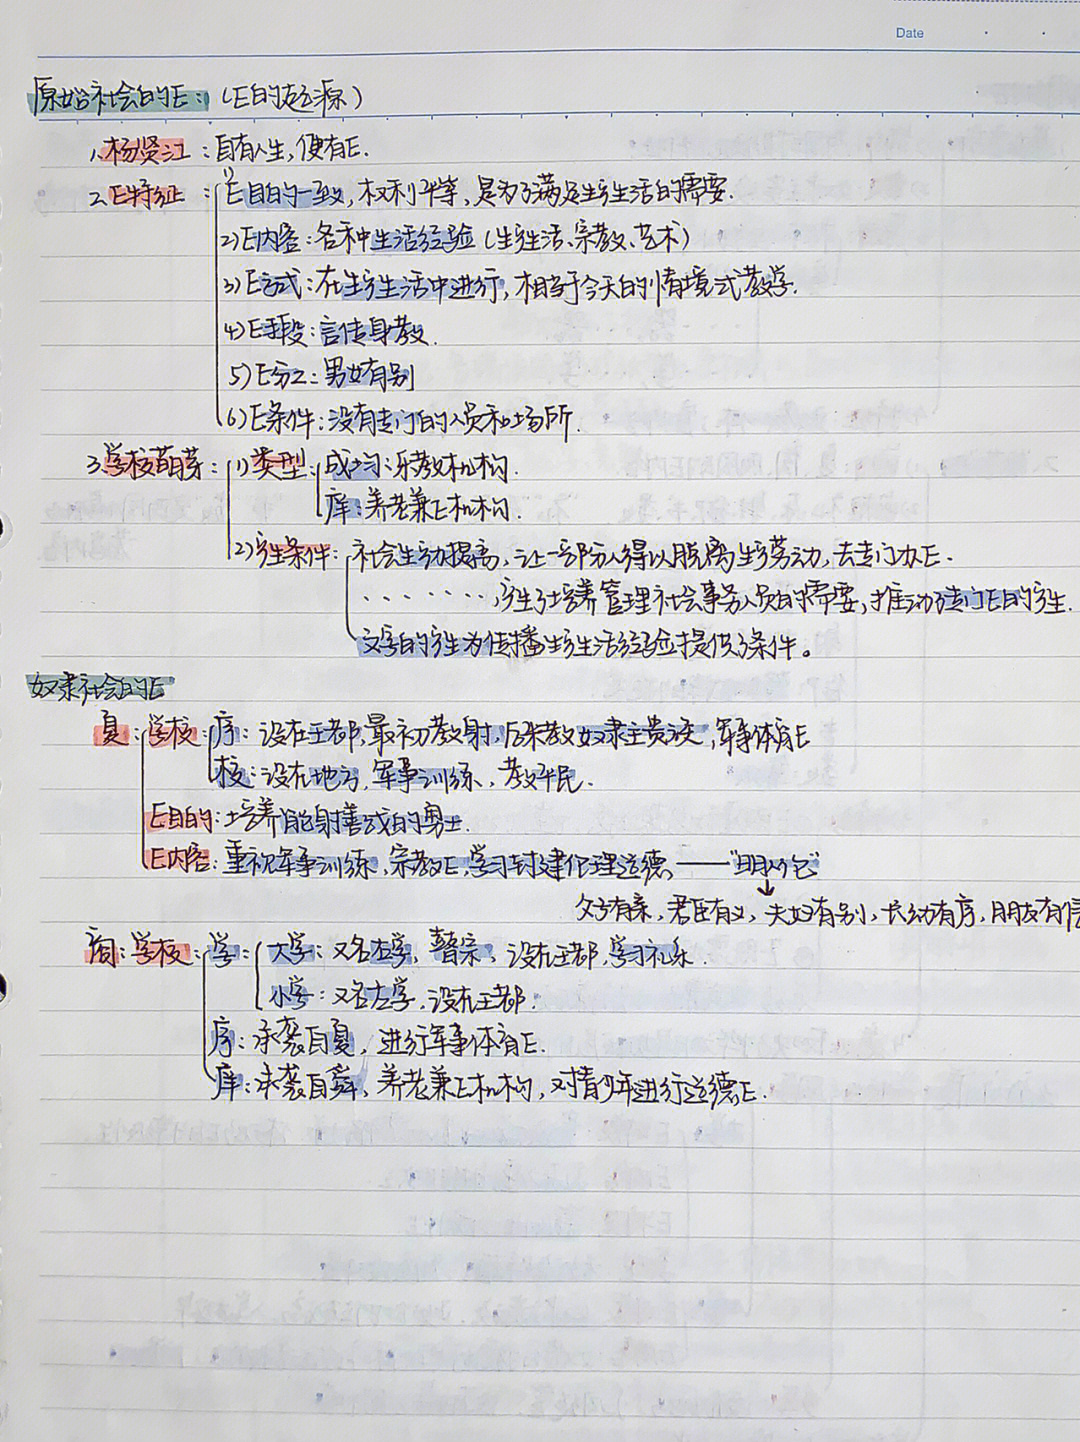 Date
原始社会的E：（E的起源）
1、杨贤江：自有人生，便有E.
2、E特征：1) E目的一致，权利平等，是为了满足生产生活的需要.
2) E内容：各种生活经验（生产生活、宗教、艺术）
3) E方式：在生产生活中进行，相当于今天的情境式教学.
4) E手段：言传身教.
5) E分工：男女有别
6) E条件：没有专门的人员和场所.
3、学校萌芽：1) 类型：成均：乐教机构.
庠：养老兼E机构.
2) 产生条件：社会生动提高，让一部分人得以脱离生产劳动，去专门办E.
. . . . . . . ，产生了培养管理社会事务人员的需要，推动了专门E的产生.
文字的产生为传播生产生活经验提供了条件。
奴隶社会的E
夏：学校：序：设在王都，最初教射，后来教奴隶主贵族，军事体育E
校：设在地方，军事训练，教平民.
E目的：培养能射善战的勇士.
E内容：重视军事训练，宗教E，学习封建伦理道德 ——"明人伦"
父子有亲，君臣有义，夫妇有别，长幼有序，朋友有信
商：学校：学：大学：又名右学，瞽宗，设在王都，学习礼乐.
小学：又名左学，设在王都.
序：承袭自夏，进行军事体育E.
庠：承袭自舜，养老兼E机构，对青少年进行道德E.